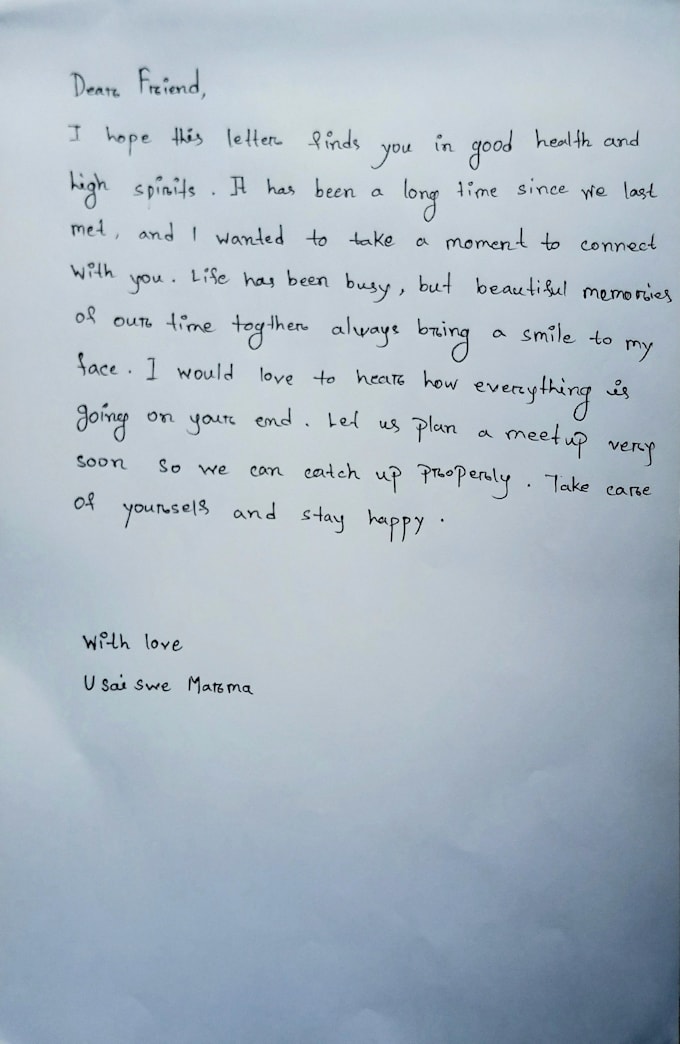 Dear Friend,
I hope this letter finds you in good health and
high spirits. It has been a long time since we last
met, and I wanted to take a moment to connect
with you. Life has been busy, but beautiful memories
of our time togther always bring a smile to my
face. I would love to hear how everything is
going on your end. Let us plan a meet up very
soon so we can catch up properly. Take care
of yourself and stay happy.
With love
U Sai Swe Marma